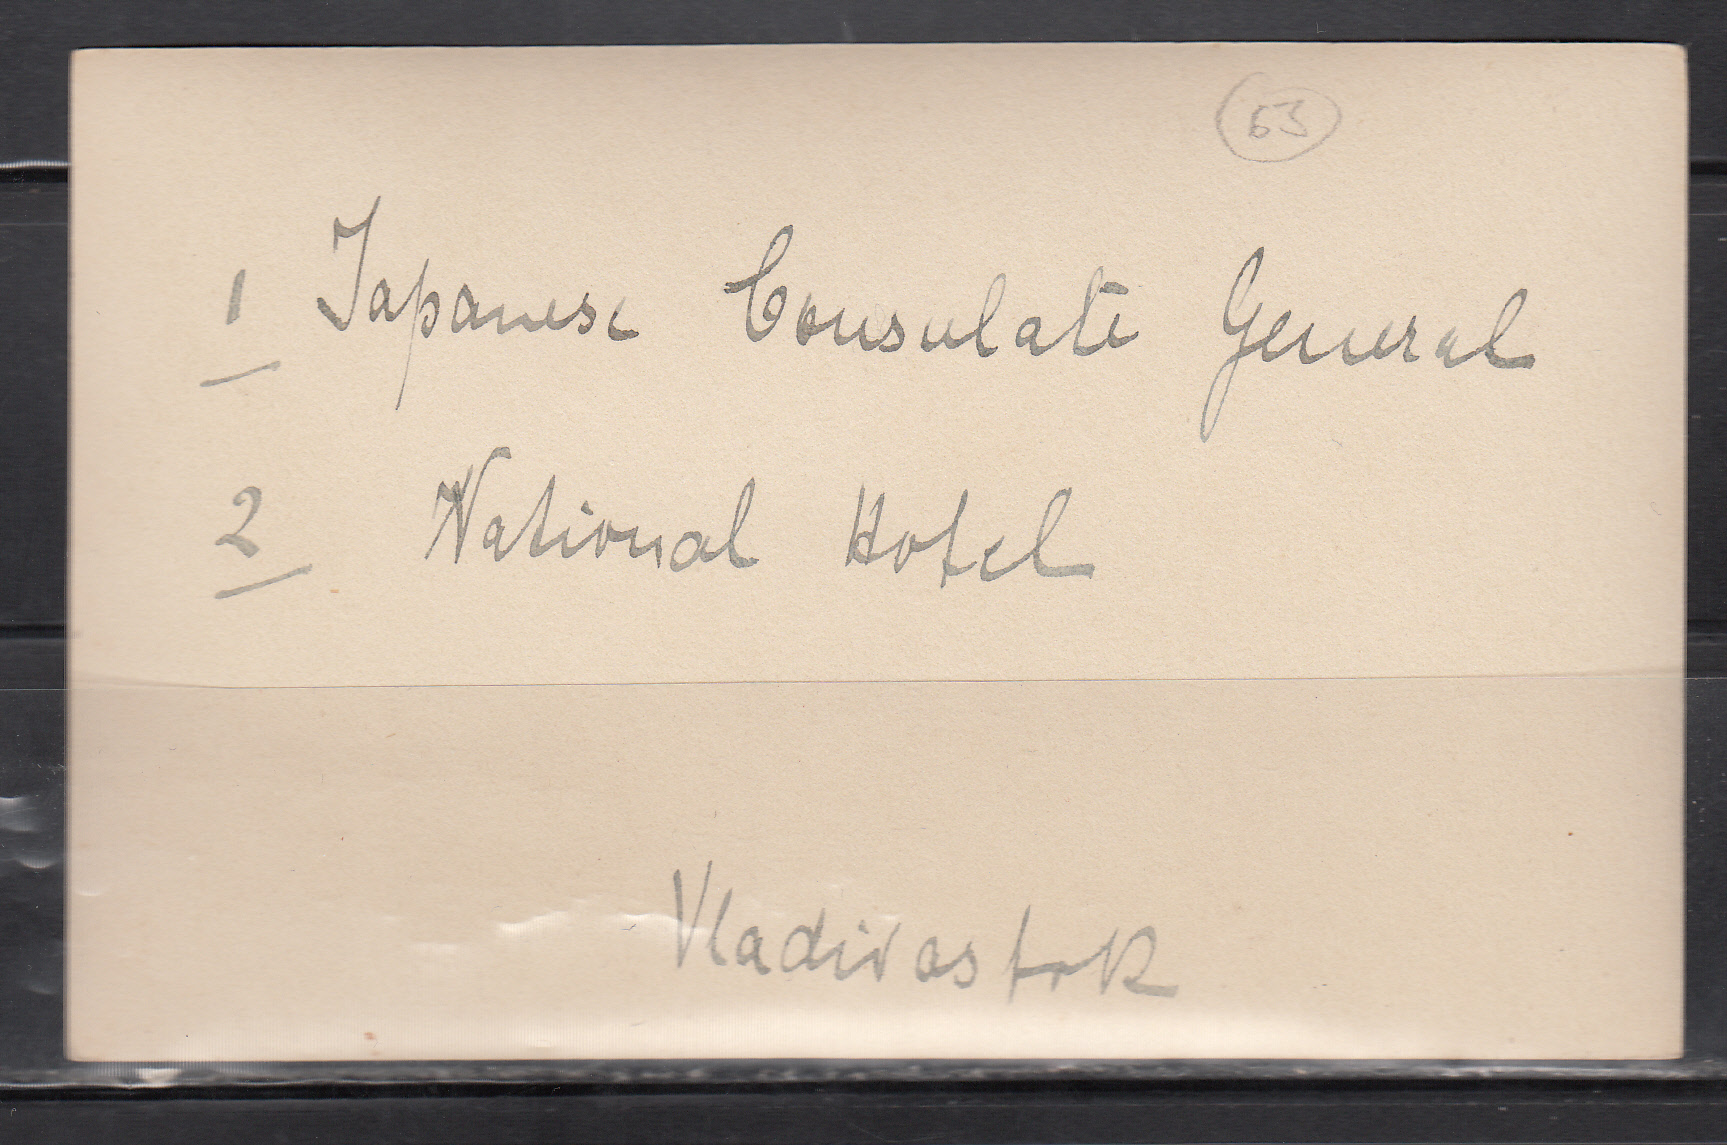 53
1 Japanese Consulate General
2 National Hotel
Vladivastok